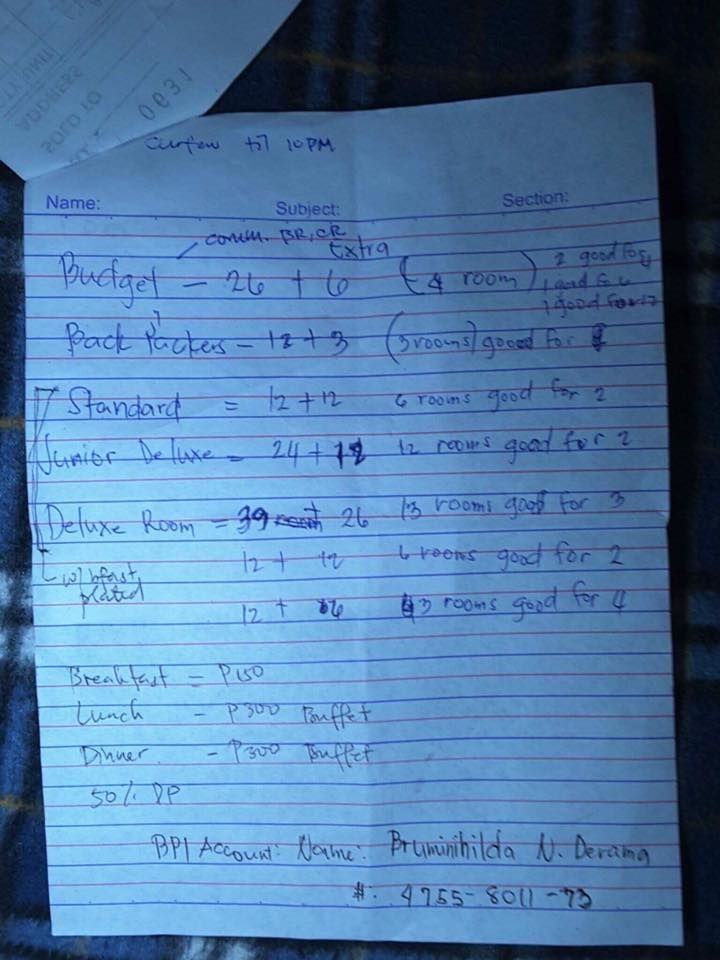 0631
SOLD TO
ADDRESS
Curfew til 10PM
Name: Subject: Section:
comm. BR, CR
Extra
Budget - 26 + 6 (4 room) 2 good for 4
1 good for 6
1 good for 12
Back Packers - 12 + 3 (3 rooms) good for
Standard = 12 + 12 6 rooms good for 2
Junior Deluxe = 24 + 12 12 rooms good for 2
Deluxe Room = 39 + 26 13 rooms good for 3
w/ bfast, 12 + 12 6 rooms good for 2
plated
12 + 6 3 rooms good for 4
Breakfast = P150
Lunch - P300 Buffet
Dinner - P300 Buffet
50% DP
BPI Account: Name: Bruminihilda N. Derama
#: 4755-8011-73